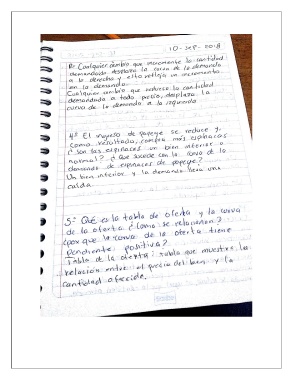 10-sep-2018
R= Cualquier cambio que incremente la cantidad
demandada desplaza la curva de la demanda
a la derecha y esto refleja un incremento
en la demanda.
Cualquier cambio que reduce la cantidad
demandada a todo precio, desplaza la
curva de la demanda a la izquierda
4= El ingreso de popeye se reduce y,
como resultado, compra más espinacas
¿son las espinacas un bien inferior o
normal? ¿Que sucede con la curva de la
demanda de espinacas de popeye?
Un bien inferior y la demanda lleva una
caida
5= Qué es la tabla de oferta y la curva
de la oferta ¿cómo se relacionan?
¿por que la curva de la oferta tiene
pendiente positiva?
Tabla de la oferta: tabla que muestra la
relación entre el precio del bien y la
cantidad ofrecida.